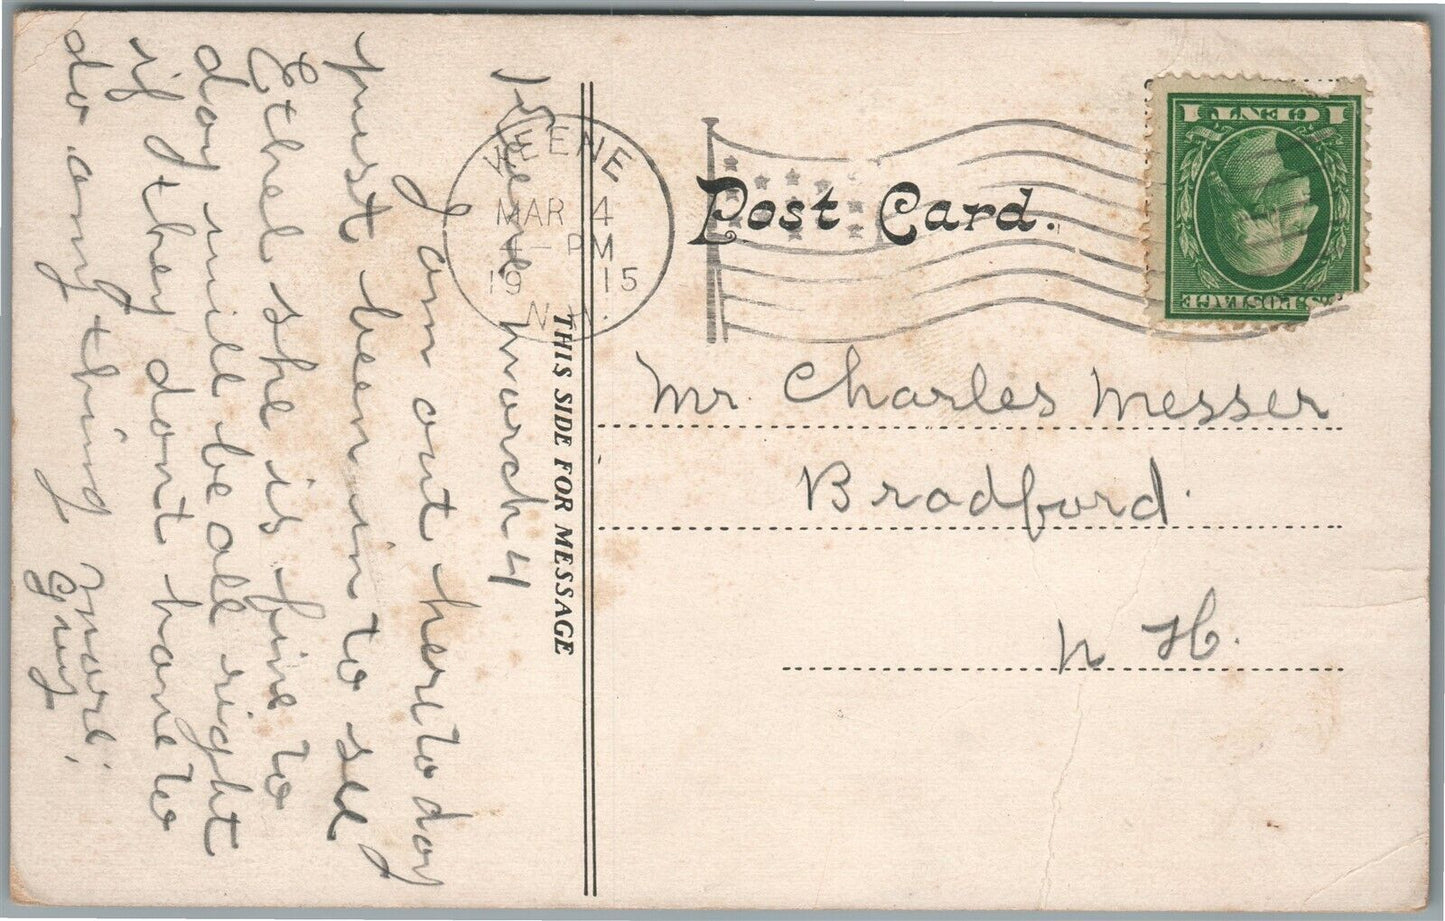 Post Card.
1 CENT 1
U.S. POSTAGE
KEENE
MAR 4
4- PM
19 15
N.H.
THIS SIDE FOR MESSAGE
Mr. Charles Messer
Bradford.
N H.
Keene March 4
I am out here to day
just been in to see
Ethel she is fine to
day will be all right
if they dont have to
do any thing more.
Guy